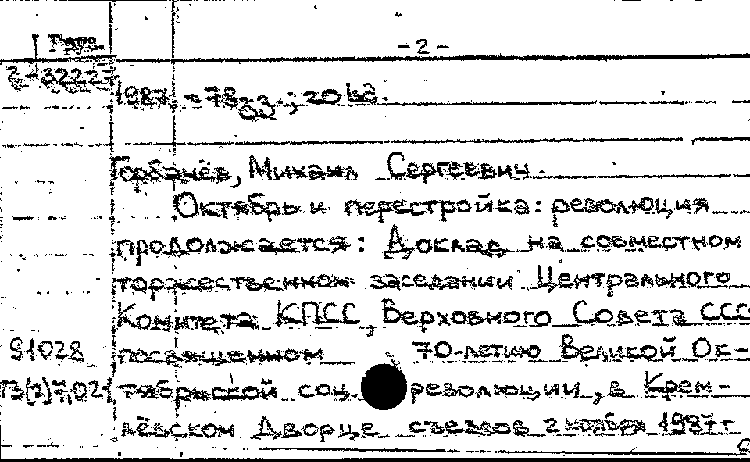 - 2 -
2-32227
1987. - 78 ; 20
Горбачёв, Михаил Сергеевич.
Октябрь и перестройка: революция
продолжается: Доклад на совместном
торжественном заседании Центрального
Комитета КПСС, Верховного Совета ССС
91028 посвященном 70-летию Великой Ок-
тябрьской соц. революции, в Крем-
лёвском Дворце съездов 2 ноября 1987 г.